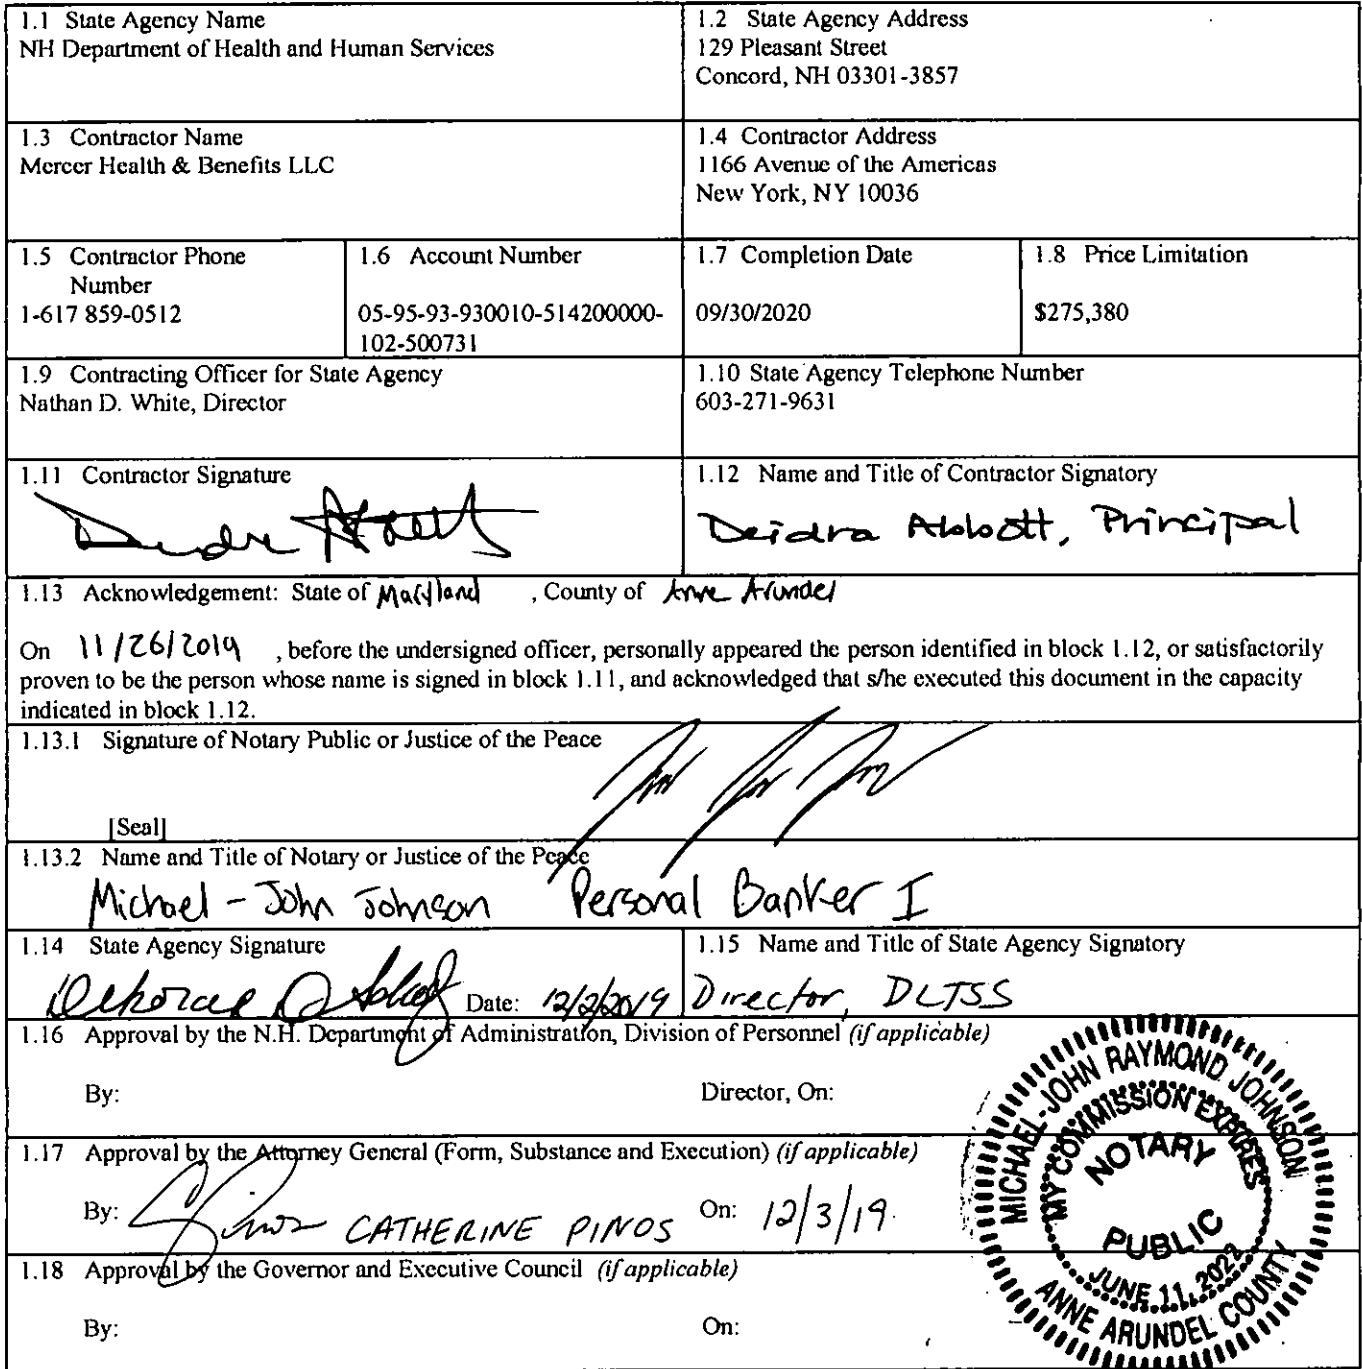 1.1 State Agency Name
NH Department of Health and Human Services
1.2 State Agency Address
129 Pleasant Street
Concord, NH 03301-3857
1.3 Contractor Name
Mercer Health & Benefits LLC
1.4 Contractor Address
1166 Avenue of the Americas
New York, NY 10036
1.5 Contractor Phone
Number
1-617 859-0512
1.6 Account Number
05-95-93-930010-514200000-
102-500731
1.7 Completion Date
09/30/2020
1.8 Price Limitation
$275,380
1.9 Contracting Officer for State Agency
Nathan D. White, Director
1.10 State Agency Telephone Number
603-271-9631
1.11 Contractor Signature
1.12 Name and Title of Contractor Signatory
Deidra Abbott, Principal
1.13 Acknowledgement: State of Maryland , County of Anne Arundel
On 11/26/2019 , before the undersigned officer, personally appeared the person identified in block 1.12, or satisfactorily
proven to be the person whose name is signed in block 1.11, and acknowledged that s/he executed this document in the capacity
indicated in block 1.12.
1.13.1 Signature of Notary Public or Justice of the Peace
[Seal]
1.13.2 Name and Title of Notary or Justice of the Peace
Michael-John Johnson Personal Banker I
1.14 State Agency Signature
Date: 12/2/2019
1.15 Name and Title of State Agency Signatory
Director, DLTSS
1.16 Approval by the N.H. Department of Administration, Division of Personnel (if applicable)
By: Director, On:
1.17 Approval by the Attorney General (Form, Substance and Execution) (if applicable)
By: CATHERINE PINOS On: 12/3/19
1.18 Approval by the Governor and Executive Council (if applicable)
By: On:
MICHAEL-JOHN RAYMOND JOHNSON
MY COMMISSION EXPIRES
NOTARY
PUBLIC
JUNE 11, 2022
ANNE ARUNDEL COUNTY